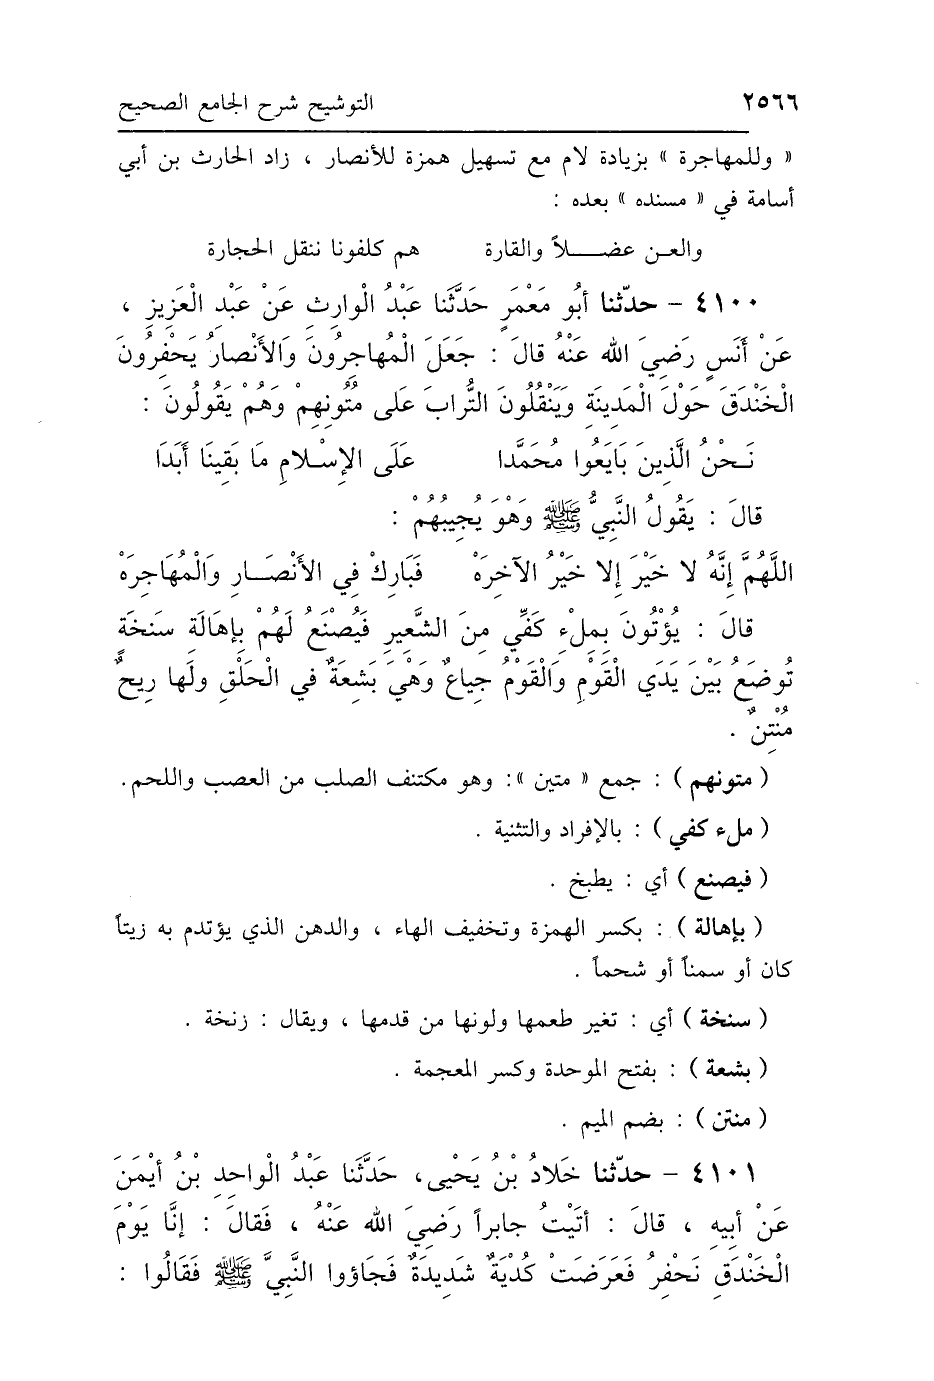 ٢٥٦٦ التوشيح شرح الجامع الصحيح
« وللمهاجرة » بزيادة لام مع تسهيل همزة للأنصار ، زاد الحارث بن أبي
أسامة في « مسنده » بعده :
والعن عضـــلاً والقارة هم كلفونا ننقل الحجارة
٤١٠٠ – حدّثنا أبُو مَعْمَرٍ حَدَّثَنا عَبْدُ الْوارِثِ عَنْ عَبْدِ الْعَزِيزِ ،
عَنْ أَنَسٍ رَضِيَ الله عَنْهُ قالَ : جَعَلَ الْمُهاجِرُونَ وَالأَنْصارُ يَحْفِرُونَ
الْخَنْدَقَ حَوْلَ الْمَدِينَةِ وَيَنْقُلُونَ التُّرابَ عَلى مُتُونِهِمْ وَهُمْ يَقُولُونَ :
نَـحْنُ الَّذِينَ بَايَعُوا مُحَمَّدا عَلَى الإِسْـلامِ مَا بَقِينَا أَبَدَا
قالَ : يَقُولُ النَّبِيُّ ﷺ وَهْوَ يُجِيبُهُمْ :
اللَّهُمَّ إِنَّهُ لا خَيْرَ إِلا خَيْرُ الآخِرَهْ فَبَارِكْ فِي الأَنْصَــارِ وَالْمُهَاجِرَهْ
قالَ : يُؤْتُونَ بِمِلْءِ كَفِّي مِنَ الشَّعِيرِ فَيُصْنَعُ لَهُمْ بِإهَالَةِ سَنخَةٍ
تُوضَعُ بَيْنَ يَدَي الْقَوْمِ وَالْقَوْمُ جِياعٌ وَهْيَ بَشِعَةٌ في الْحَلْقِ ولَها رِيحٌ
مُنْتِنٌ .
( متونهم ) : جمع « متين »: وهو مكتنف الصلب من العصب واللحم.
( ملء كفي ) : بالإفراد والتثنية .
( فيصنع ) أي : يطبخ .
( بإهالة ) : بكسر الهمزة وتخفيف الهاء ، والدهن الذي يؤتدم به زيتاً
كان أو سمناً أو شحماً .
( سنخة ) أي : تغير طعمها ولونها من قدمها ، ويقال : زنخة .
( بشعة ) : بفتح الموحدة وكسر المعجمة .
( منتن ) : بضم الميم .
٤١٠١ – حدّثنا خَلادُ بْنُ يَحْيى، حَدَّثَنا عَبْدُ الْواحِدِ بْنُ أَيْمَنَ
عَنْ أبِيهِ ، قالَ : أتَيْتُ جابراً رَضِيَ الله عَنْهُ ، فَقالَ : إنَّا يَوْمَ
الْخَنْدَقِ نَحْفِرُ فَعَرَضَتْ كُدْيَةٌ شَدِيدَةٌ فَجَاؤوا النَّبِيَّ ﷺ فَقَالُوا :